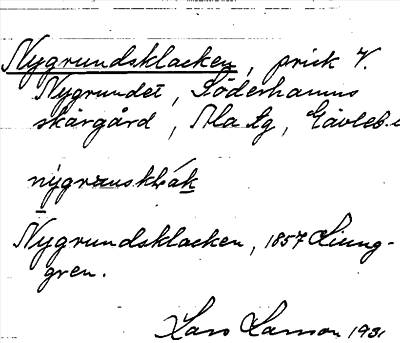 Nygrundsklacken, prick V.
Nygrundet, Söderhamns
skärgård, Ala sg, Gävleb.
nygrunsklak
Nygrundsklacken, 1857 Ljung-
gren.
Lars Larsson 1931